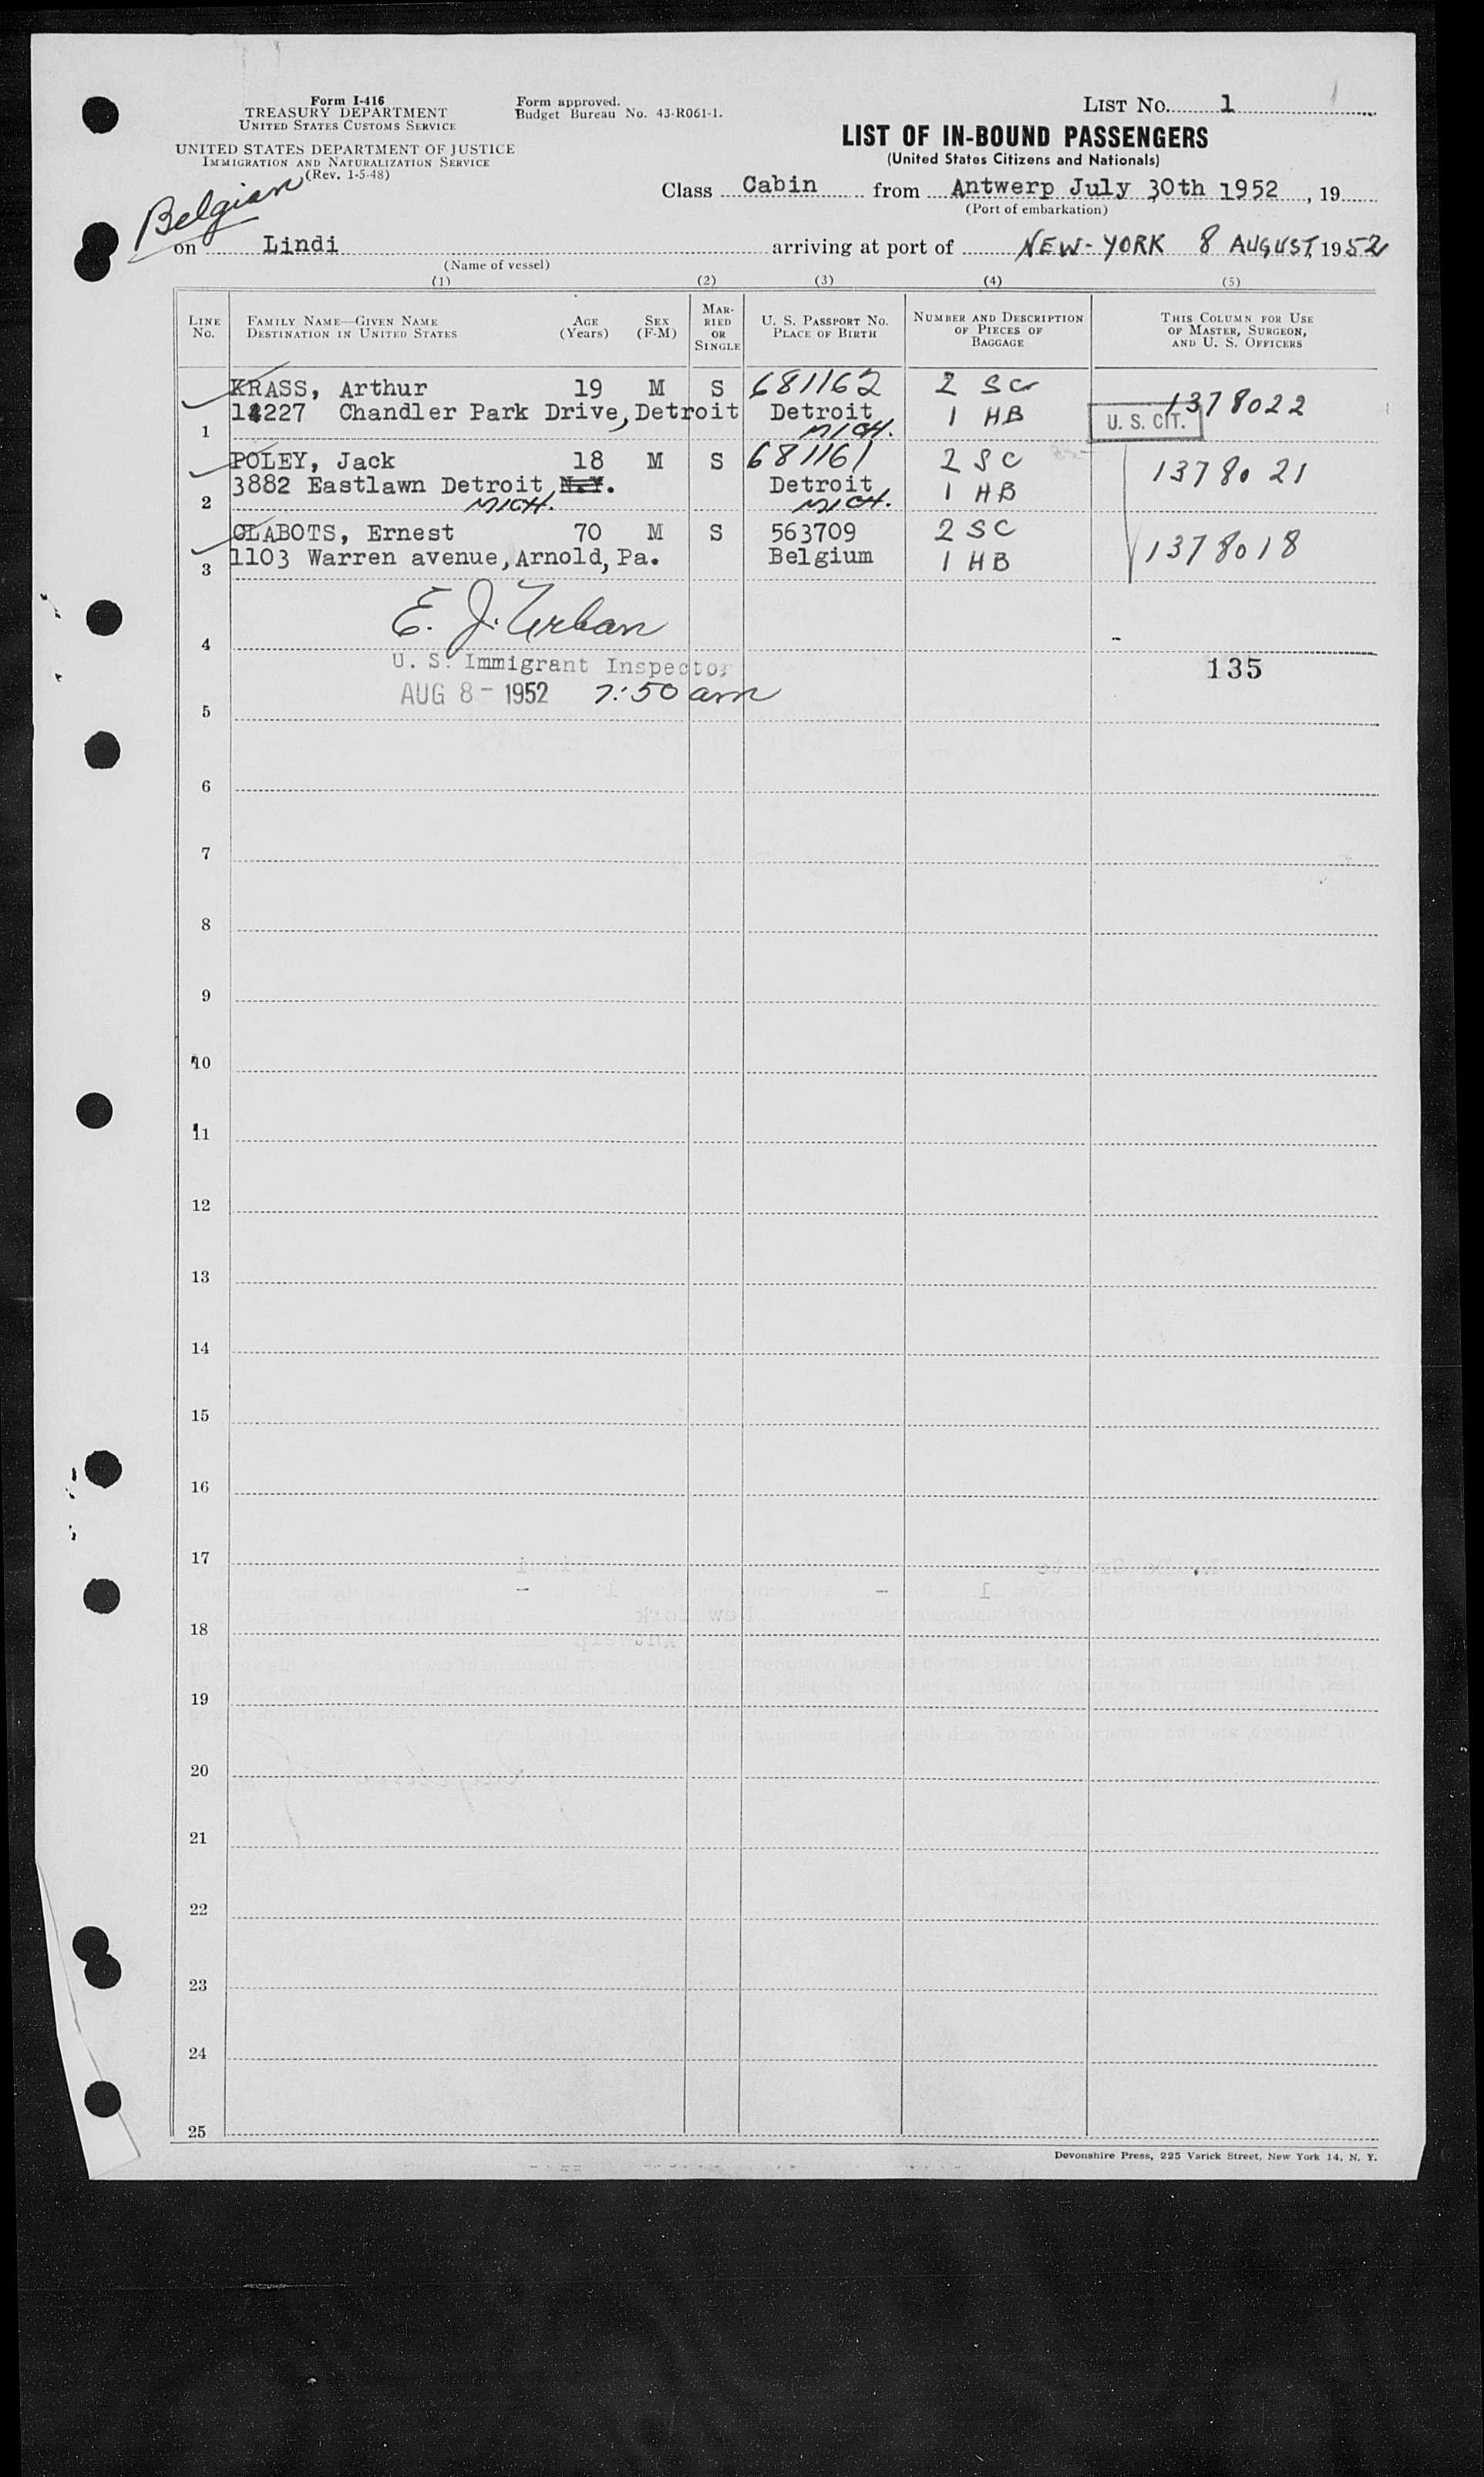 Form I-416
TREASURY DEPARTMENT
UNITED STATES CUSTOMS SERVICE
UNITED STATES DEPARTMENT OF JUSTICE
IMMIGRATION AND NATURALIZATION SERVICE
(Rev. 1-5-48)
Form approved.
Budget Bureau No. 43-R061-1.
LIST NO. 1
LIST OF IN-BOUND PASSENGERS
(United States Citizens and Nationals)
Class Cabin from Antwerp July 30th 1952, 19
(Port of embarkation)
Belgian
on Lindi arriving at port of NEW-YORK 8 AUGUST, 1952
(Name of vessel)
(1) (2) (3) (4) (5)
LINE NO. FAMILY NAME—GIVEN NAME DESTINATION IN UNITED STATES AGE (Years) SEX (F-M) MARRIED OR SINGLE U. S. PASSPORT NO. PLACE OF BIRTH NUMBER AND DESCRIPTION OF PIECES OF BAGGAGE THIS COLUMN FOR USE OF MASTER, SURGEON, AND U. S. OFFICERS
KRASS, Arthur 19 M S 681162 2 SC
1 Chandler Park Drive, Detroit Detroit MICH. 1 HB U. S. CIT. 1378022
POLEY, Jack 18 M S 681161 2 SC 1378021
2 3882 Eastlawn Detroit, N.Y. MICH. Detroit MICH. 1 HB
CLABOTS, Ernest 70 M S 563709 2 SC
3 1103 Warren avenue, Arnold, Pa. Belgium 1 HB 1378018
E. J. Urban
4
U. S. Immigrant Inspector 135
AUG 8 - 1952 7:50 am
5
6
7
8
9
10
11
12
13
14
15
16
17
18
19
20
21
22
23
24
25
Devonshire Press, 225 Varick Street, New York 14, N. Y.